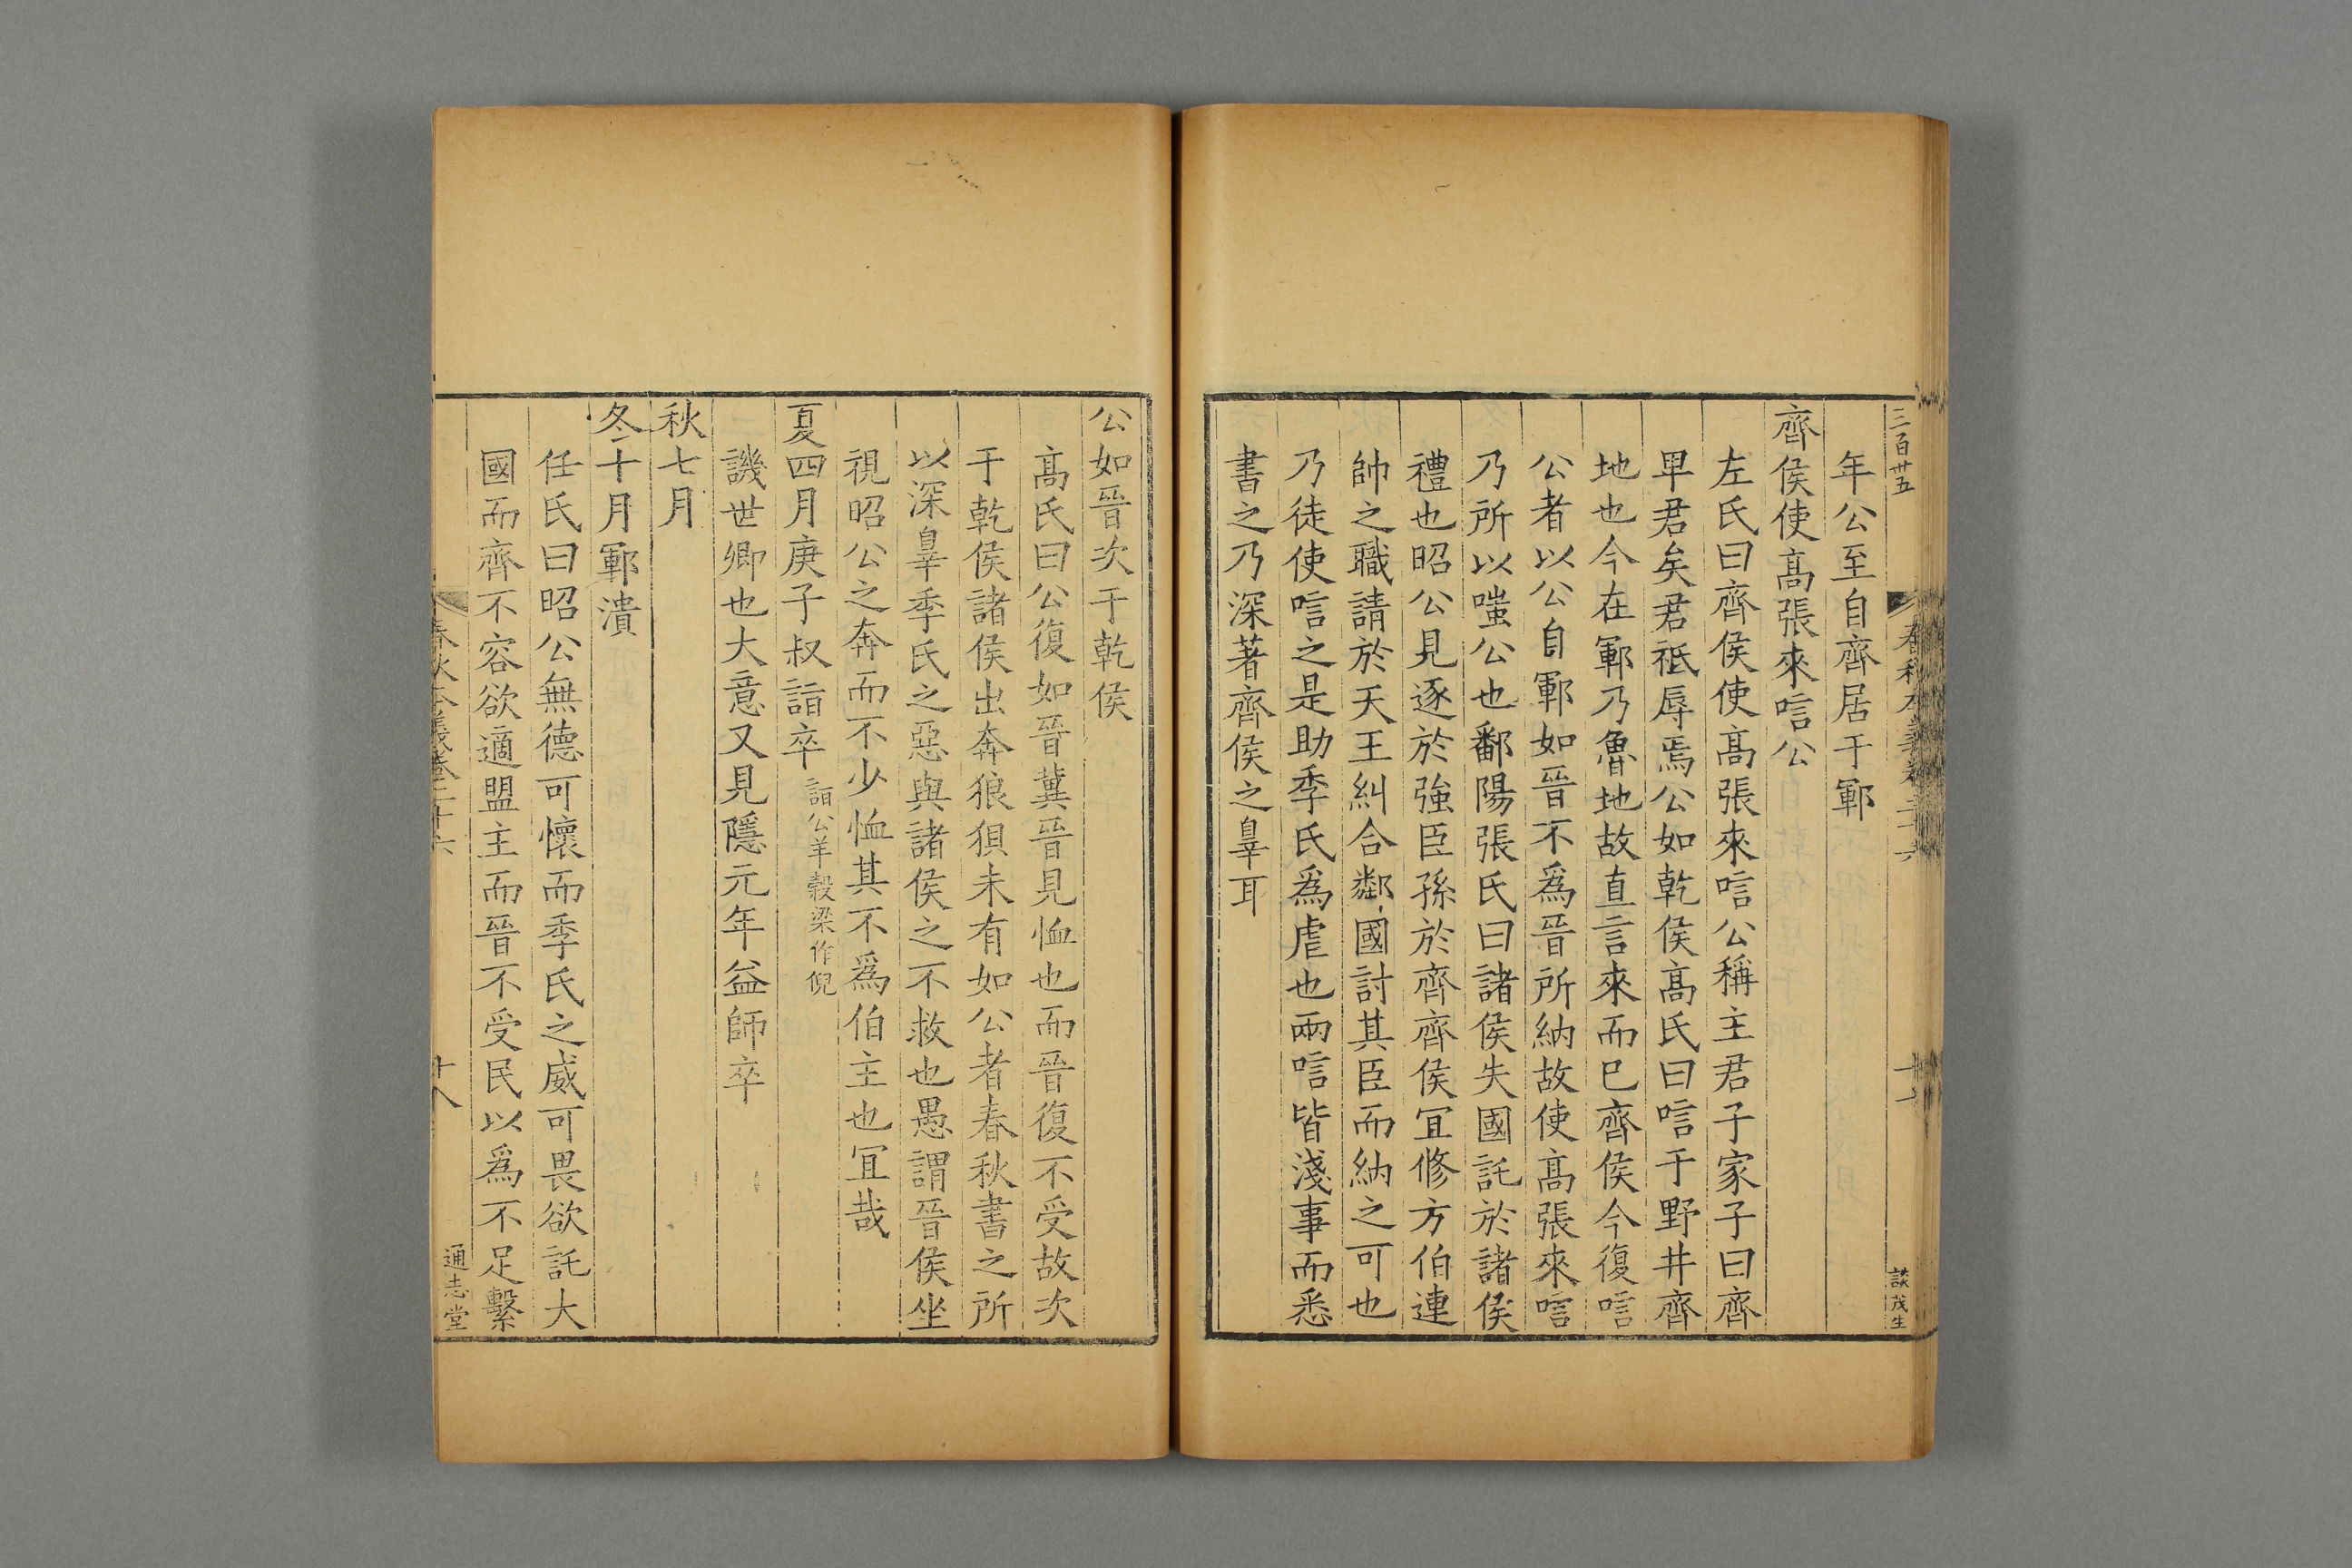 三百廿五
春秋本義卷二十六
談茂生
年公至自齊居于鄆
齊侯使髙張來唁公
左氏曰齊侯使髙張來唁公稱主君子家子曰齊
卑君矣君祗辱焉公如乾侯髙氏曰唁于野井齊
地也今在鄆乃魯地故直言來而已齊侯今復唁
公者以公自鄆如晉不爲晉所納故使髙張來唁
乃所以嗤公也鄱陽張氏曰諸侯失國託於諸侯
禮也昭公見逐於強臣孫於齊齊侯宜修方伯連
帥之職請於天王糾合鄰國討其臣而納之可也
乃徒使唁之是助季氏爲虐也兩唁皆淺事而悉
書之乃深著齊侯之辠耳
公如晉次于乾侯
髙氏曰公復如晉冀晉見恤也而晉復不受故次
于乾侯諸侯出奔狼狽未有如公者春秋書之所
以深辠季氏之惡與諸侯之不救也愚謂晉侯坐
視昭公之奔而不少恤其不爲伯主也宜哉
夏四月庚子叔詣卒詣公羊穀梁作倪
譏世卿也大意又見隱元年益師卒
秋七月
冬十月鄆潰
任氏曰昭公無德可懷而季氏之威可畏欲託大
國而齊不容欲適盟主而晉不受民以爲不足繫
春秋本義卷二十六
十八
通志堂